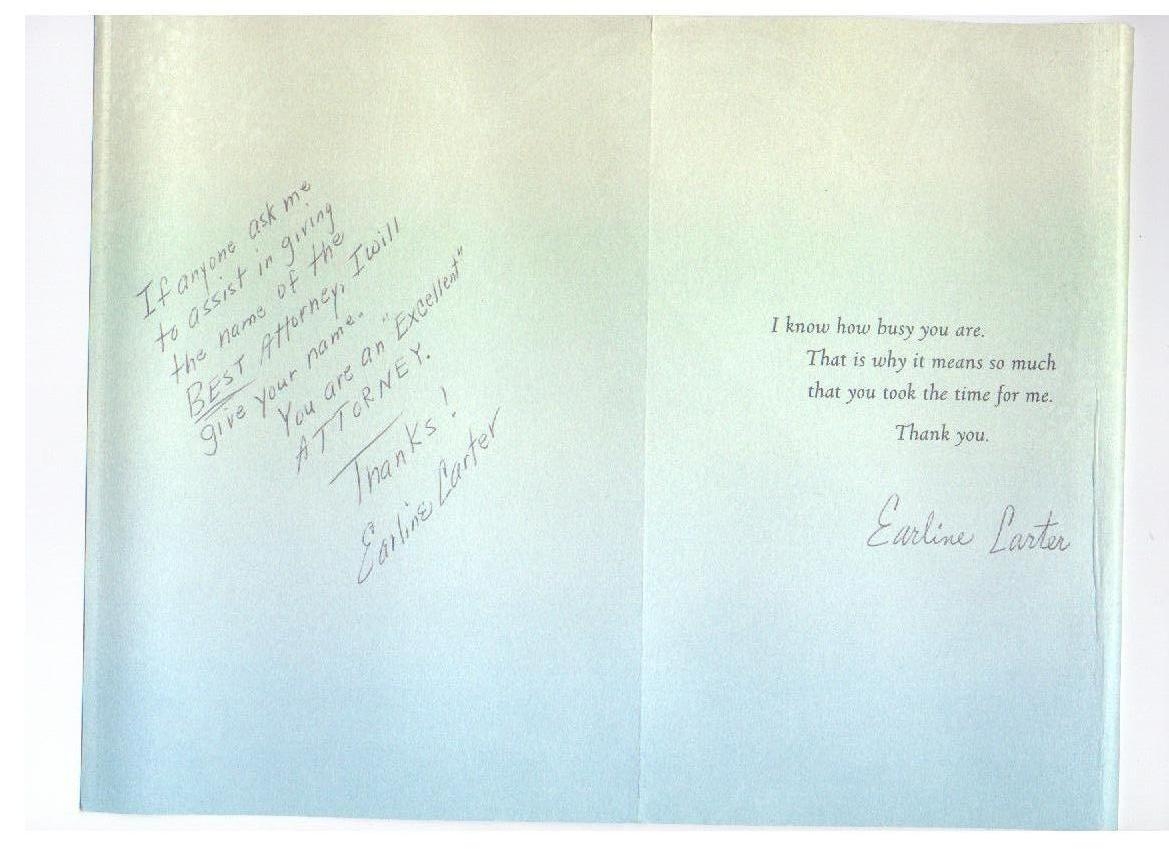 If anyone ask me
to assist in giving
the name of the
BEST Attorney, I will
give your name.
You are an "Excellent"
ATTORNEY.
Thanks!
Earline Carter
I know how busy you are.
That is why it means so much
that you took the time for me.
Thank you.
Earline Carter